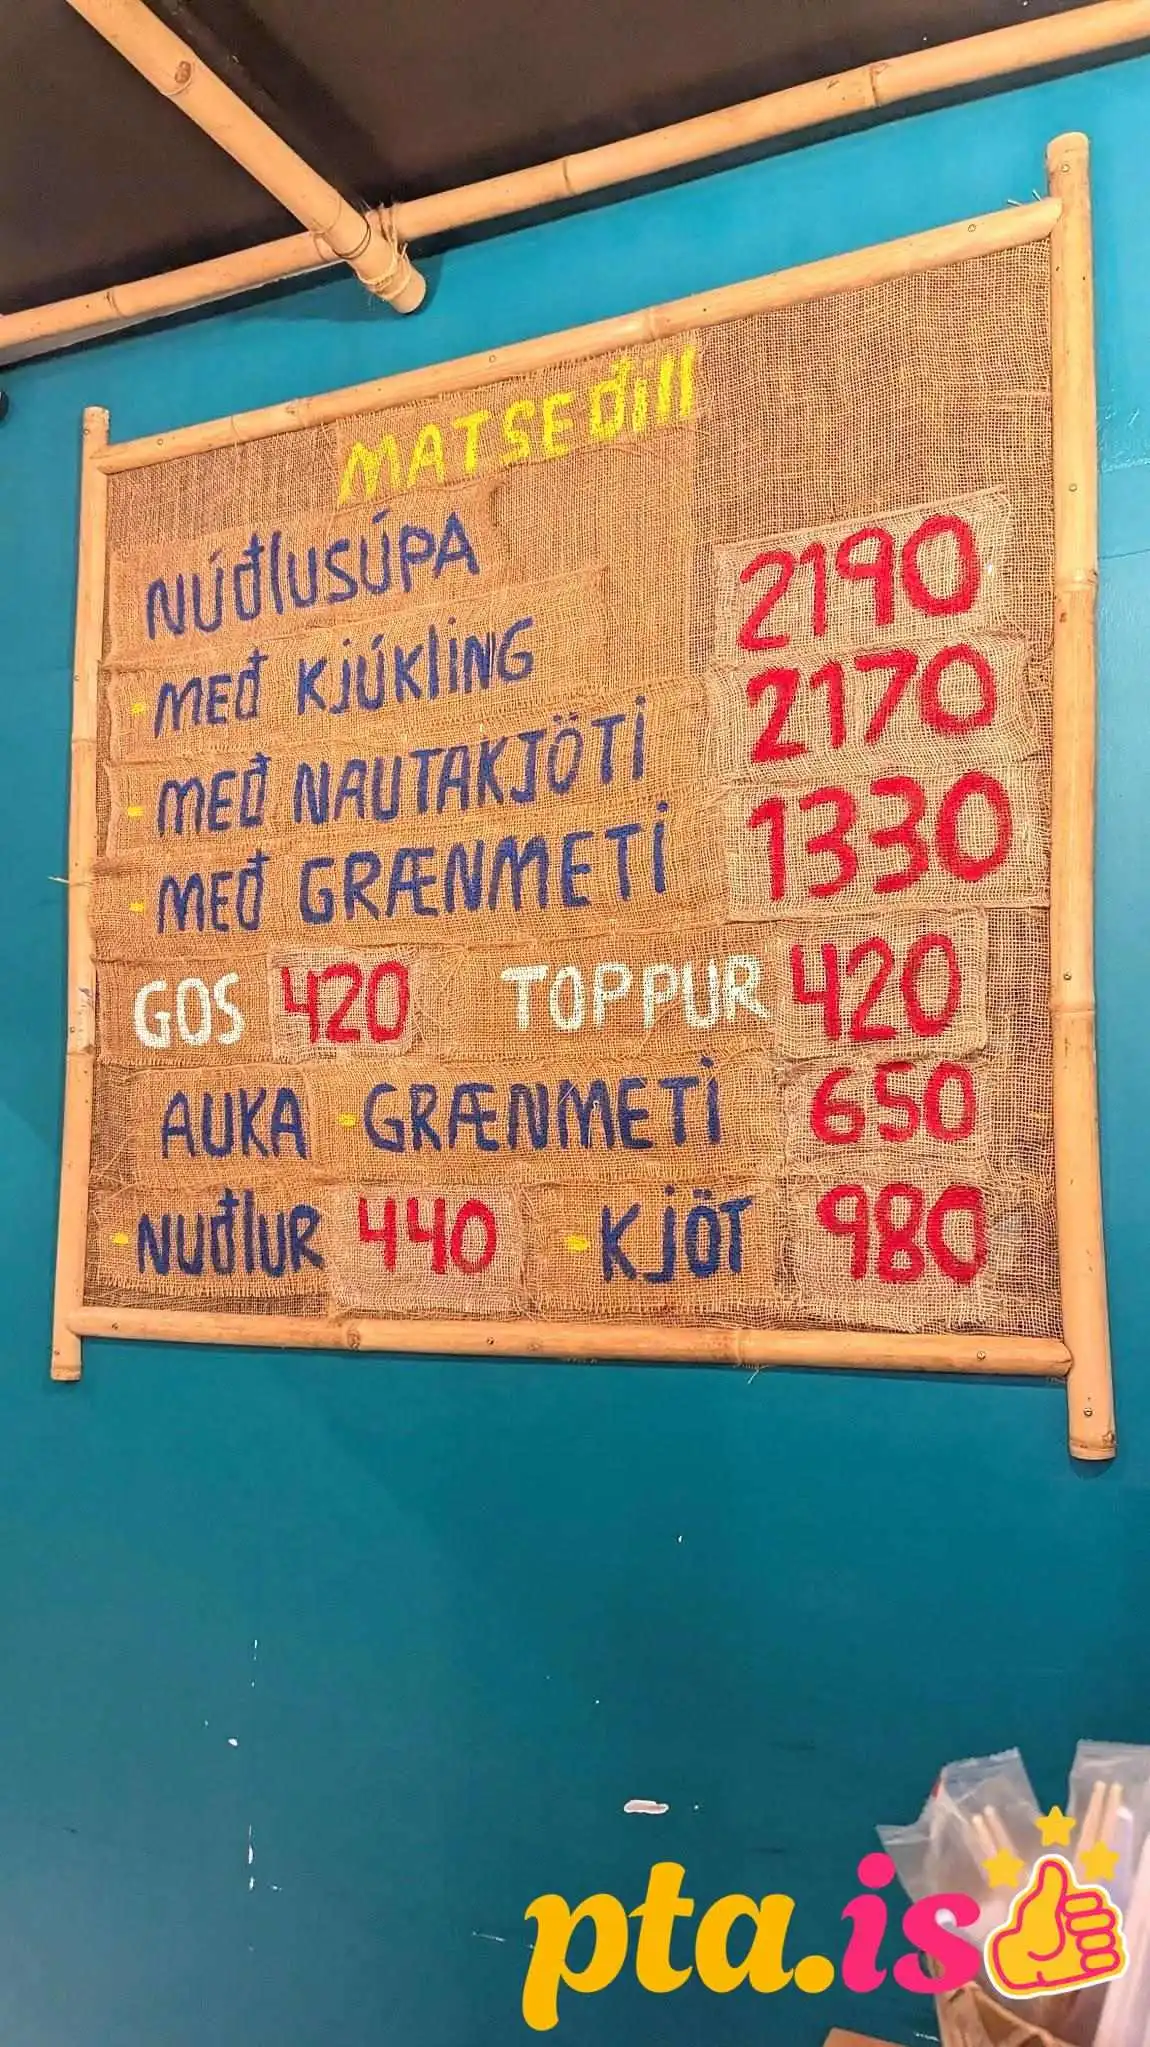 MATSEÐill
NÚÐlUSÚPA
- MEÐ KJÚKliNG 2190
- MEÐ NAUTAKJÖTi 2170
- MEÐ GRÆNMETi 1330
GOS 420 TOPPUR 420
AUKA - GRÆNMETi 650
- NUÐlUR 440 - KJÖT 980
pta.is